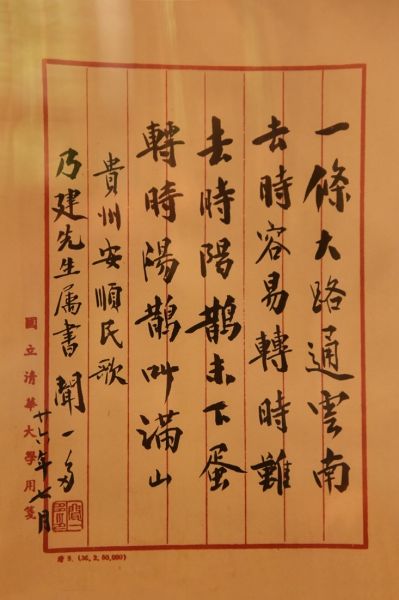 一條大路通雲南
去時容易轉時難
去時陽鵲未下蛋
轉時陽鵲叫滿山
貴州安順民歌
乃建先生属書 聞一多
廿六年七月
國立清華大學用箋
5. (36, 2, 50,000)